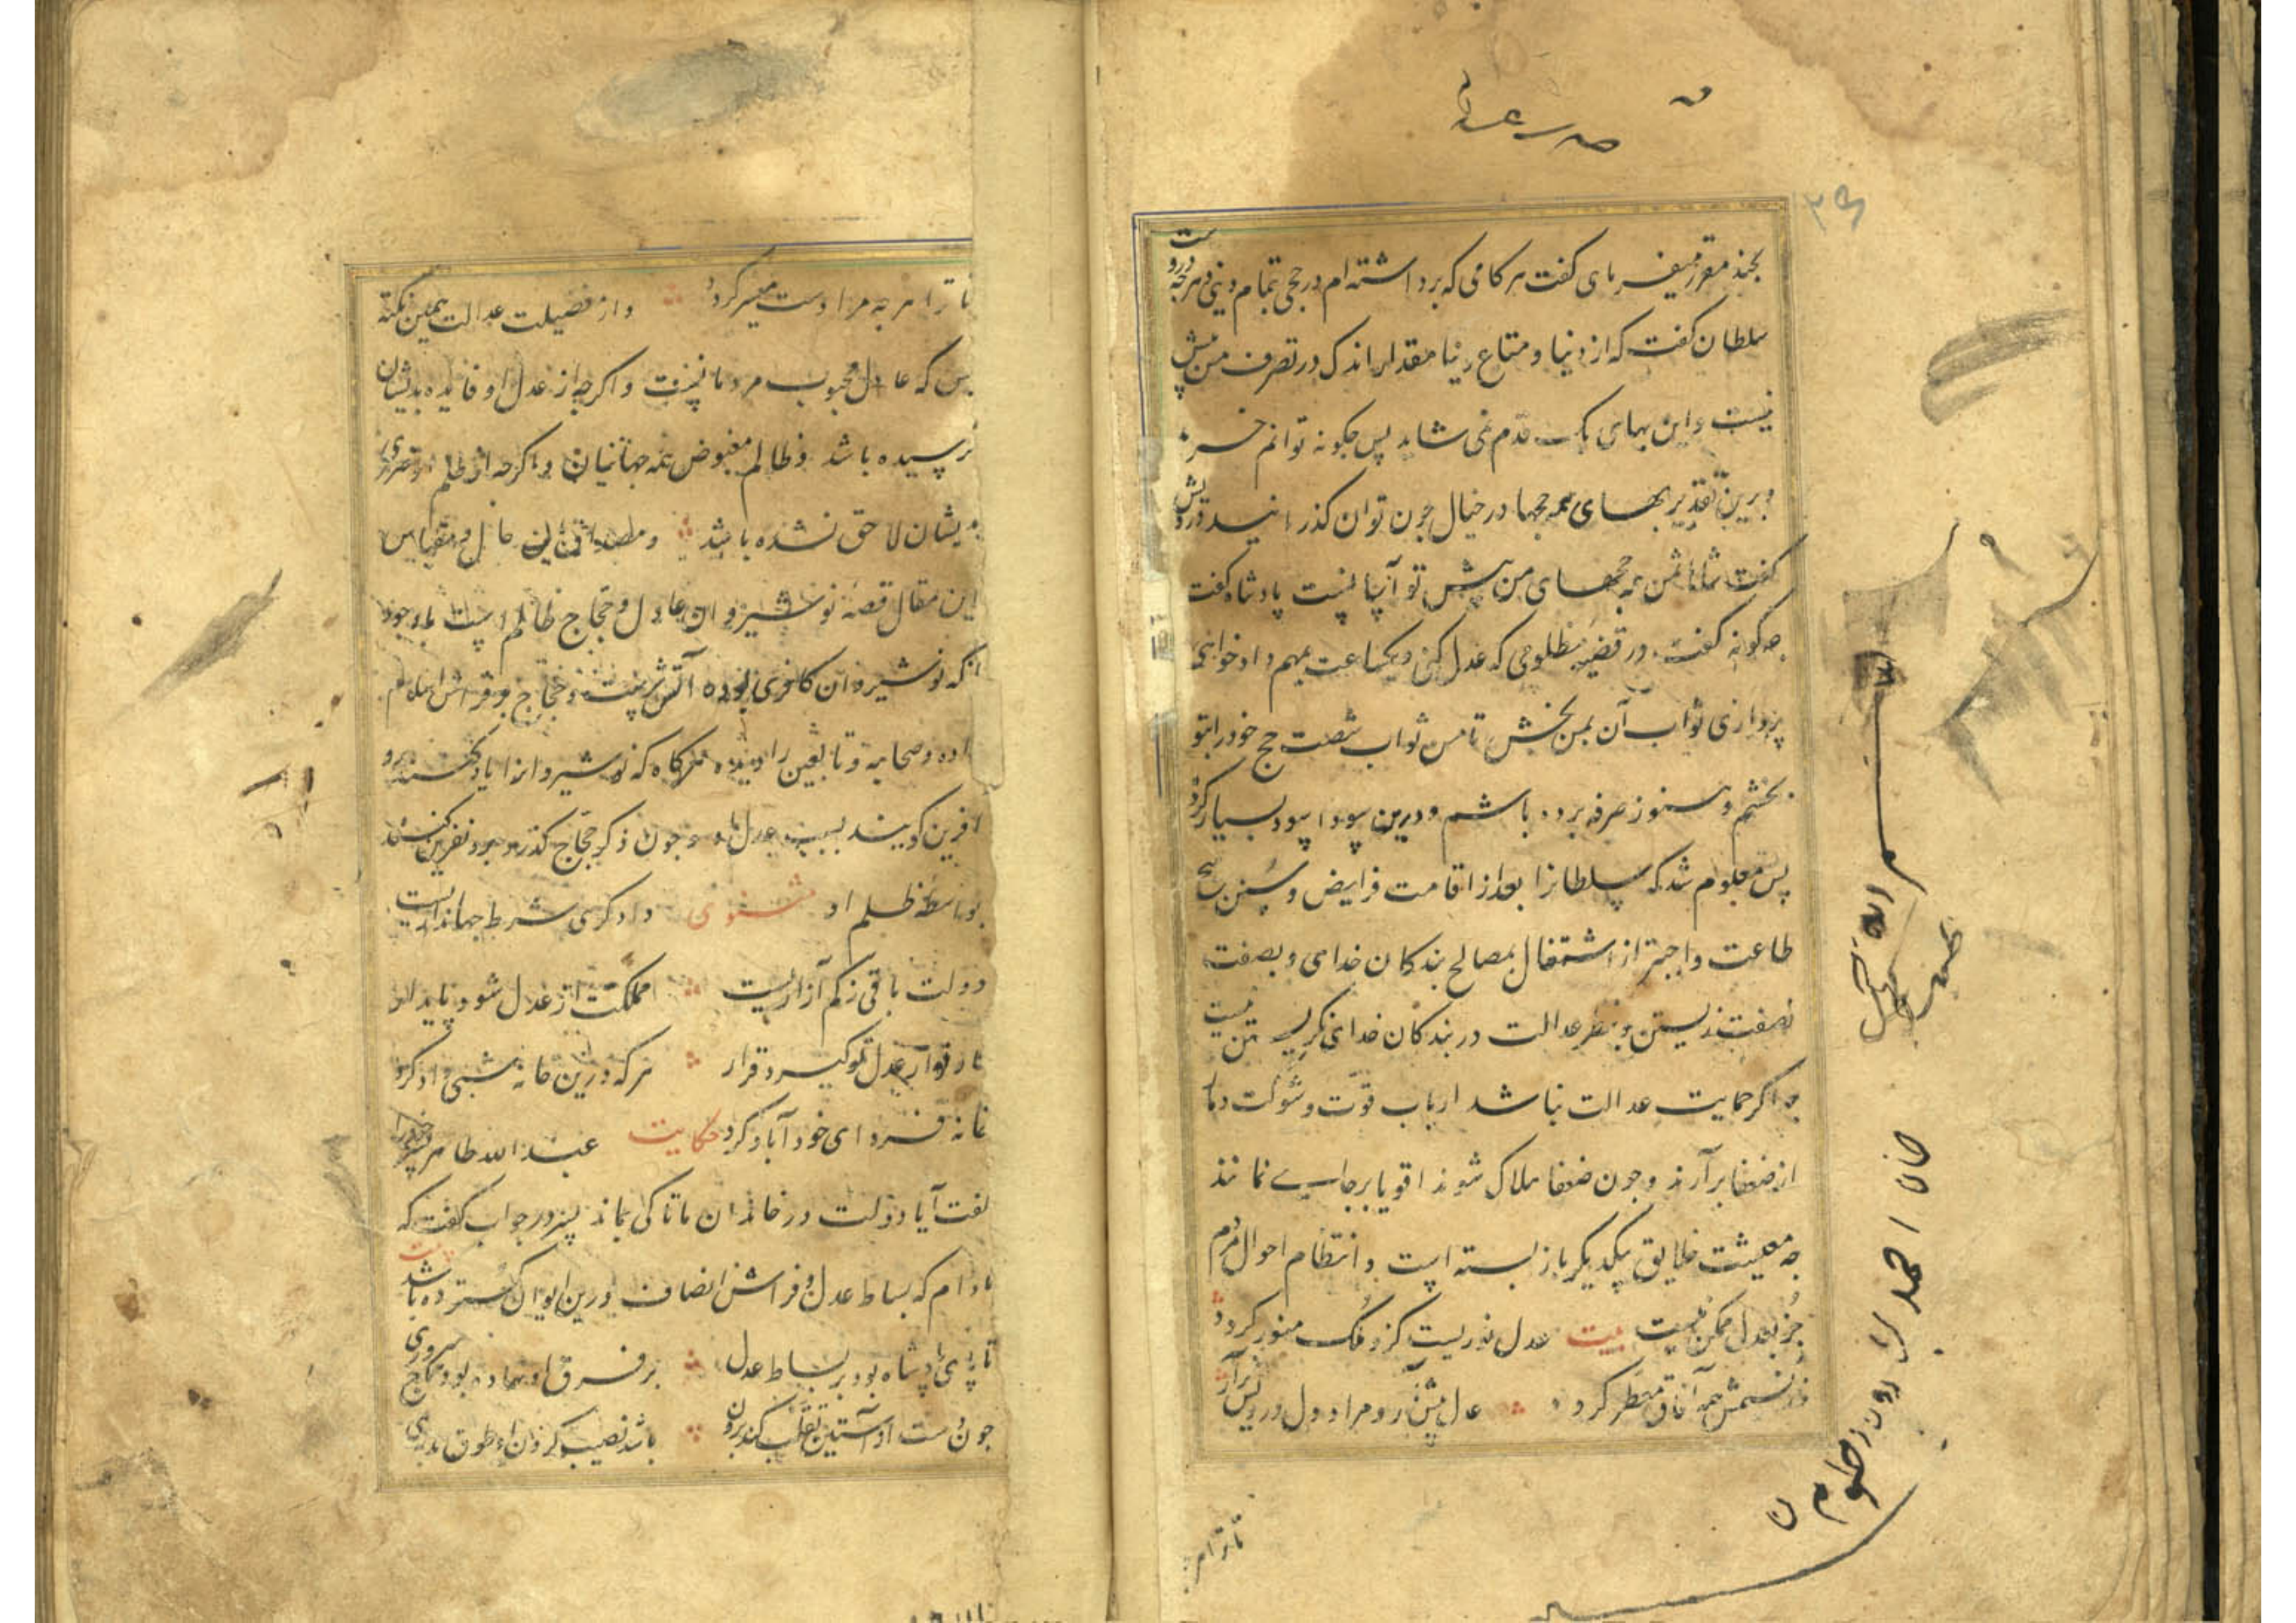 بچند مقرر میفرمای گفت هر کامی که برداشته ام در حجی بتمام دنیی و هرچه دروست
سلطان گفت که از دنیا و متاع دنیا مقدار اندک در تصرف من بیش
نیست و این بهای یک قدم نمی شاید پس چکونه توانم خرید
و برین تقدیر بهای همه حجها در خیال چون توان گذرانید درویش
گفت شاها ثمن همه حجهای من پیش تو آسانست پادشاه گفت
چه گونه گفت در قضیه مظلومی که عدل کنی و یکساعت بمهم دادخواهی
پردازی ثواب آن بمن بخش تا من ثواب شصت حج خود را بتو
بخشم و هنوز صرفه برده باشم و درین سودا سود بسیار کرده
پس معلوم شد که سلطانرا بعد از اقامت فرایض و سنن هیچ
طاعت واجبتر از اشتغال بمصالح بندکان خدای و بصفت
نصفت زیستن و بنظر عدالت در بندکان خدای نکریستن نیست
چه اکر حمایت عدالت نباشد ارباب قوت و شوکت دمار
از ضعفا برآرند و چون ضعفا هلاک شوند اقویا برجای نمانند
چه معیشت خلایق بیکدیکر باز بسته است و انتظام احوال مردم
جز بعدل ممکن نیست بیت عدل نوریست کزو ملک منور کردد
وز نسیمش همه آفاق معطر کردد عدل پیش آر و مراد دل درویش برآر
تا ترا هر
تا ترا هرچه مرادست میسر کردد و از فضیلت عدالت همین نکته
بس که عادل محبوب مردمانست و اکرچه از عدل او فایده بدیشان
نرسیده باشد و ظالم مبغوض همه جهانیان و اکرچه از ظلم او ضرری
بدیشان لاحق نشده باشد و مصداق این حال و مقیاس
این مقال قصه نوشیروان عادل و حجاج ظالم است باوجود
آنکه نوشیروان کافری بوده آتش پرست و حجاج بر فراش اسلام
زاده و صحابه و تابعین را دیده هرکاه که نوشیروانرا یاد کنند برو
آفرین کویند بسبب عدل او و چون ذکر حجاج کذرد برو نفرین کنند
بواسطه ظلم او مثنوی دادکری شرط جهاندایست
دولت باقی زکم آزاریست مملکت از عدل شود پایدار
کار تو از عدل تو کیرد قرار هرکه درین خانه شبی داد کرد
خانه فردای خود آباد کرد حکایت عبدالله طاهر پسر خود را
گفت آیا دولت در خاندان ما تا کی بماند پسر در جواب گفت که
مادام که بساط عدل و فراش انصاف درین ایوان کسترده باشد بیت
تا پای پادشاه بود بر بساط عدل بر فرق او نهاده بود تاج سروری
چون دست او آستین تغلب کند برون باشد نصیب کردن او طوق مدبری